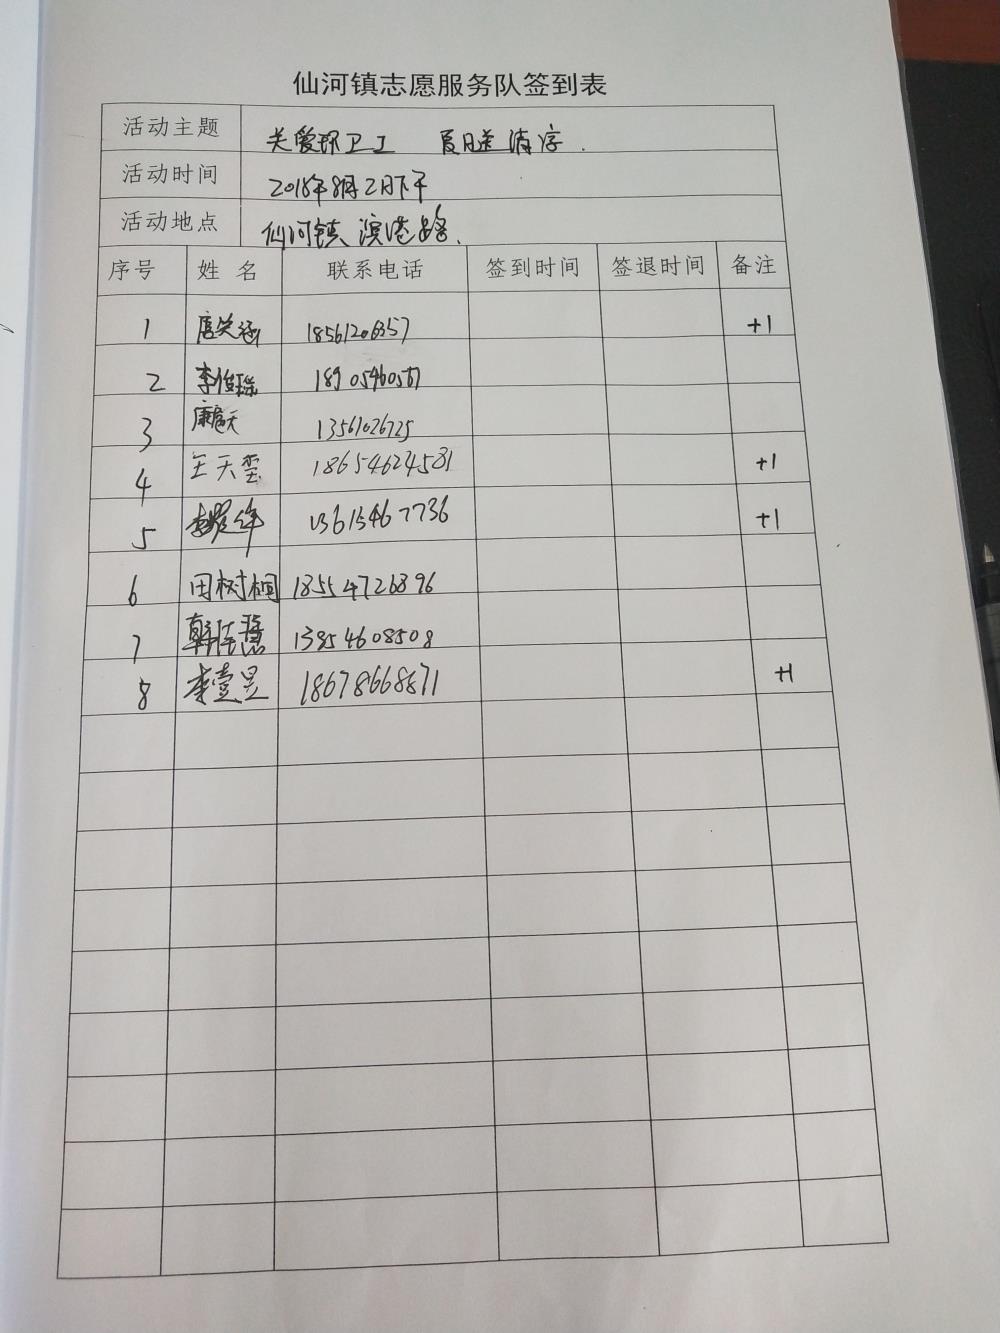 仙河镇志愿服务队签到表
活动主题 关爱环卫工 夏日送清凉.
活动时间 2018年8月2日下午
活动地点 仙河镇滨港路.
序号 姓名 联系电话 签到时间 签退时间 备注
1 18561206357 +1
2 李俊瑶 18905460567
3 13561026725
4 王天玺 18654624581 +1
5 13615467736 +1
6 田树桐 18554726896
7 13854608508
8 李壹昱 18678668671 +1